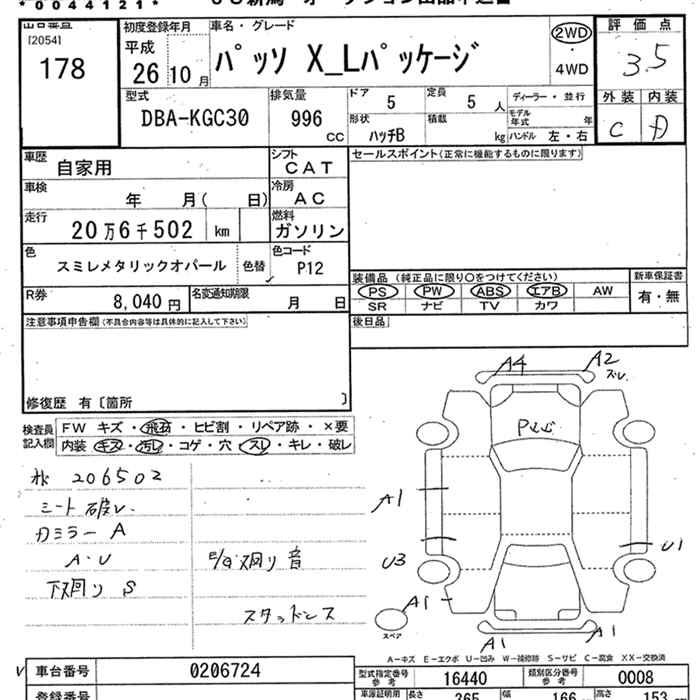 *0044121*
[2054]
178
初度登録年月
平成
26年10月
車名・グレード
パッソ X_Lパッケージ
2WD
・
4WD
評価点
3.5
型式
DBA-KGC30
排気量
996
CC
ドア
5
定員
5 人
形状
ハッチB
積載
kg
ディーラー・並行
モデル年式
年
ハンドル 左・右
外装 内装
C D
車歴
自家用
シフト
CAT
セールスポイント(正常に機能するものに限ります)
車検
年 月( 日)
冷房
AC
走行
20万6千502 km
燃料
ガソリン
色
スミレメタリックオパール
色替
色コード
P12
装備品 (純正品に限り○をつけてください)
PS PW ABS エアB AW
SR ナビ TV カワ
新車保証書
有・無
R券
8,040 円
名変通知期限
月 日
後日品
注意事項申告欄(不具合内容等は具体的に記入して下さい)
修復歴 有〔箇所 〕
検査員
記入欄
FW キズ・飛石・ヒビ割・リペア跡・×要
内装 キズ・汚レ・コゲ・穴・スレ・キレ・破レ
206502
シート破レ
ミラー A
A・U
下廻り S
E/g廻り 音
スタッドレス
A4
A2
ズレ
A1
U3
U1
A1
A1
A1
スペア
A-キズ E-エクボ U-凹み W-補修跡 S-サビ C-腐食 XX-交換済
車台番号
0206724
型式指定番号
参考
16440
類別区分番号
参考
0008
登録番号
車庫証明用
長さ
365
幅
166
高さ
153